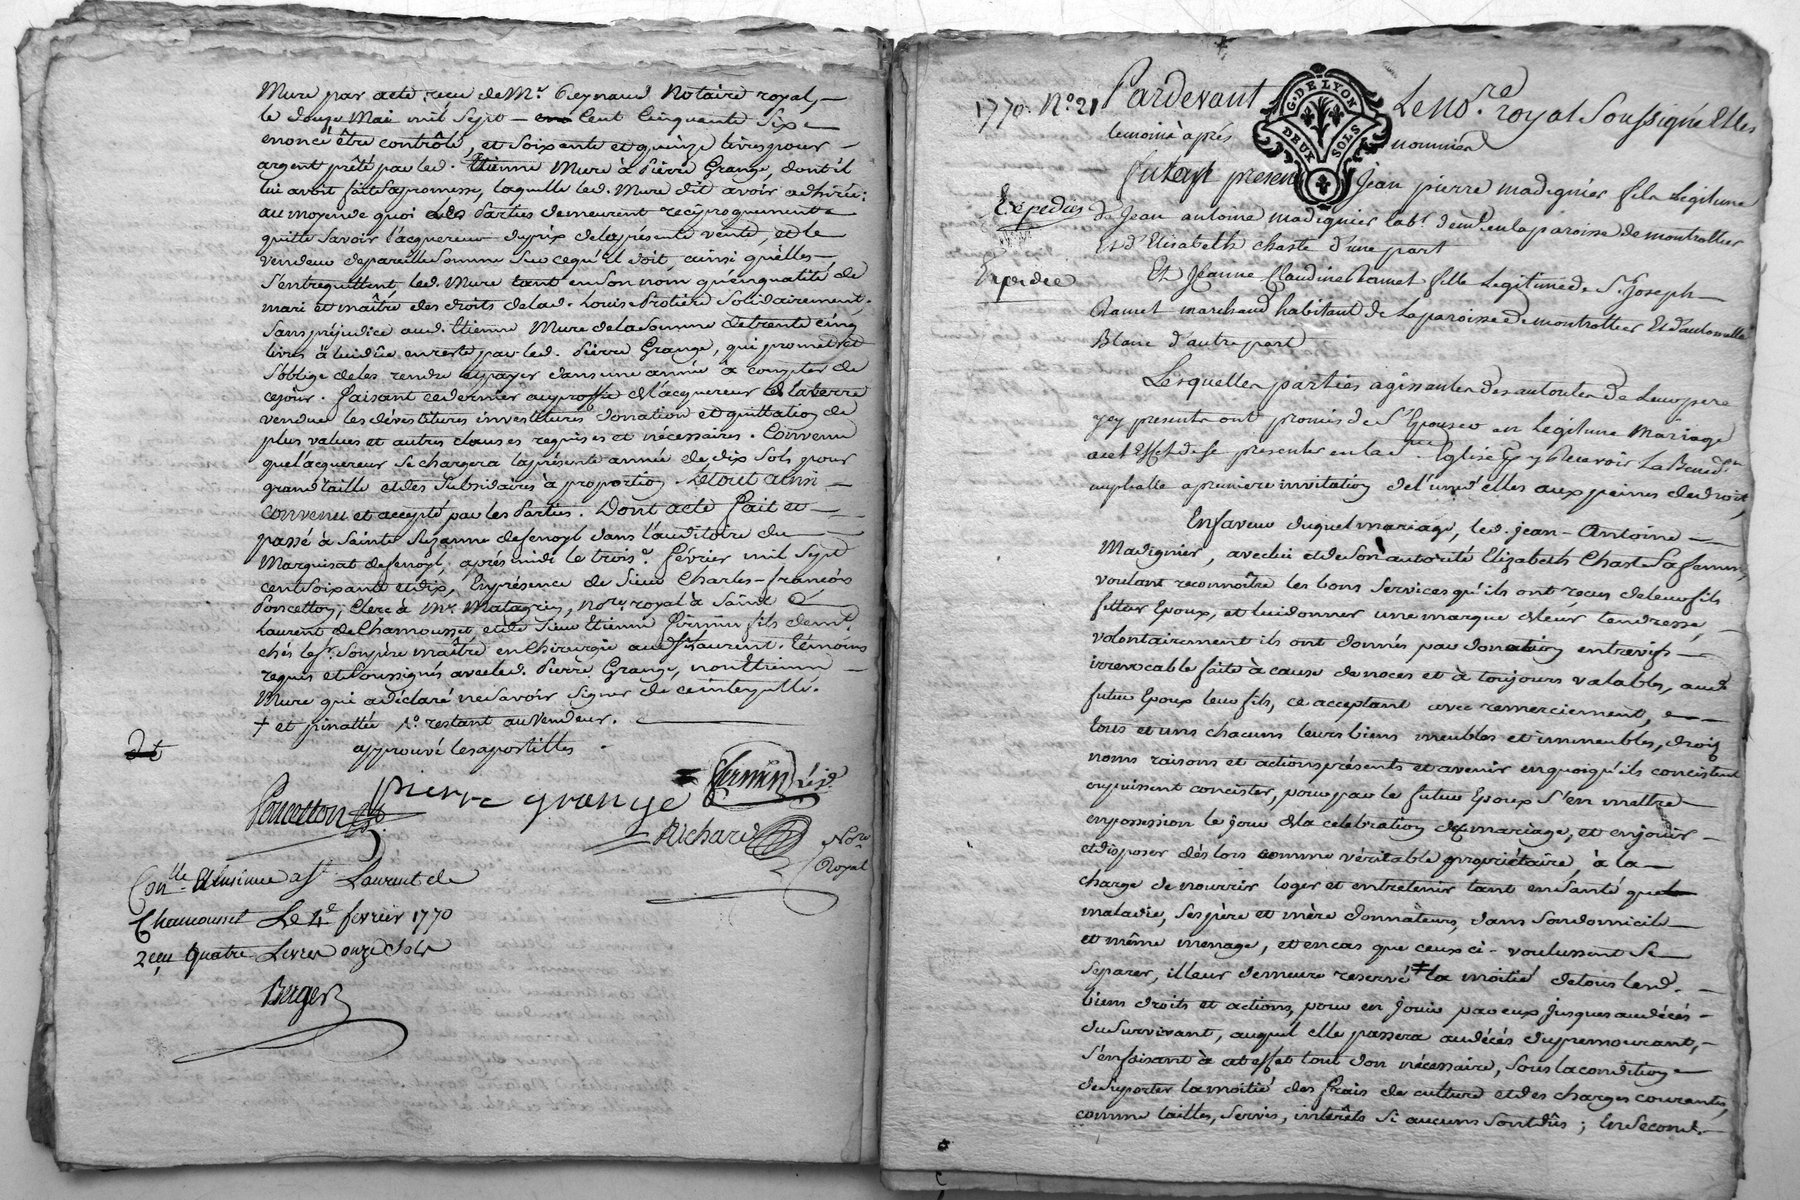 Mure par acte reçu de Mr. Peynaud Notaire royal,
le douze Mai mil Sept Cent Cinquante Six
enoncé être contrôlé, et Soixante et quinze livres pour
argent prêté par led. Etienne Mure à Pierre Grange, dont il
lui avoit fait sa promesse, laquelle led. Mure dit avoir adhirée;
au moyen de quoi les Parties demeurent reciproquement
quitte Savoir l'acquereur du prix de la présente vente, et le
vendeur de pareille Somme sur ce qu'il doit, ainsi qu'elles
S'entrequittent, led. Mure tant en Son nom qu'en qualité de
mari et maître des droits de lad. Louise Protiere Solidairement,
Sans préjudice aud. Etienne Mure de la Somme de trente cinq
livres à lui dûe en reste par led. Pierre Grange, qui promet et
S'oblige de les rendre et payer dans une année à compter de
ce jour. faisant ce dernier au profit de l'acquereur de la terre
vendue les dévestitures investitures donation et quittation de
plus values et autres clauses requises et nécessaires. Convenu
que l'acquereur Se chargera la présente année de dix Sols pour
grand taille et des Subsidaires à proportion. Le tout ainsi
convenu et accepté par les Parties. Dont acte fait et
passé à Sainte Suzanne de Senoyl dans l'auditoire du
Marquisat de Senoyl, après midi le trois.e février mil Sept
cent Soixante et dix, En présence de Sieur Charles-françois
Poncetton, Clerc à Mr. Matagrin, no.re royal à Saint
Laurent de Chamousset, et de Sieur Etienne fermin fils demt.
chés le Sr. Son père maître en Chirurgie aud. St. Laurent. témoins
requis et Soussignés avec led. Pierre Grange, non Etienne
Mure qui a déclaré ne Savoir Signer de ce interpellé.
+ et pinattée 1.o restant au vendeur.
approuvé les apostilles.
Poncetton
pierre grange
fermin
Richard
No.re
Royal
Con.lle Et insinué a St. Laurent de
Chamousset Le 4e février 1770
Reçu quatre Livres onze Sols
Berger
1770. No. 21
Pardevant Le No.re royal Soussigné Et les
temoins après nommés
G. DE LYON
DEUX SOLS
furent presens Jean pierre madignier fils Legitime
Expediés
de Jean antoine madignier lab.r dem.t en la paroisse de montrottier
Et d'Elisabeth chaste d'une part
Expediée
Et Jeanne Claudine Ramet fille Legitime de Sr. Joseph
Ramet marchand habitant de La paroisse de montrottier Et d'antoinette
Blanc d'autre part
Lesquelles parties agissantes des autorités de Leurs pere
icy presents ont promis de S'Epouser en Legitime Mariage
a cet Effet de se presenter en lad. Eglise Et y Recevoir La Bened.on
nuptialle a premiere invitation de l'une d'elles aux peines de droit,
En faveur duquel mariage, led. jean-Antoine
Madignier, avec lui et de Son autorité Elizabeth Chaste Sa femme,
voulant reconnoître les bons Services qu'ils ont reçus de leur fils
futur Epoux, et lui donner une marque de leur tendresse,
volontairement ils ont donnés par donation entrevifs
irrevocable faite à cause de noces et à toujours valables, aud.
futur Epoux leur fils, ce acceptant avec remerciement,
tous et uns chacuns leurs biens meubles et immeubles, droits
noms raisons et actions présents et avenir en quoi qu'ils concistent
ou puissent concister, pour par le futur Epoux S'en mettre
en possession le jour de la celebration du mariage, et en jouir
et disposer dès lors comme véritable propriétaire, à la
charge de nourrir loger et entretenir tant en Santé que
maladie, Ses père et mère donnateurs, dans Son domicile
et même menage, et en cas que ceux ci-voulussent Se
Séparer, il leur demeure reservé ‡ la moitié de tous lesd.
biens droits et actions, pour en jouir par eux jusques au décès
du Survivant, auquel elle passera au décès du premourant,
S'en faisant à cet effet tout don nécessaire, Sous la condition
de Suporter la moitié des frais de culture et des charges courantes,
comme tailles, Servis, intérêts Si aucuns Sont dûs; les Second.